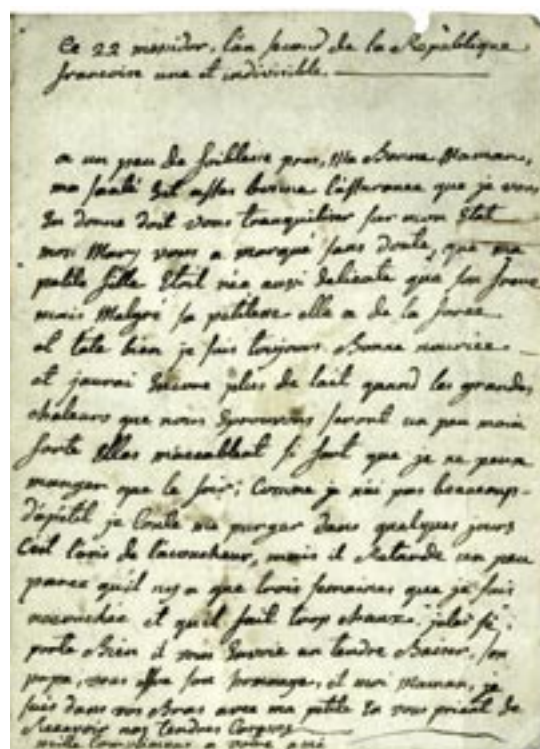 Ce 22 messidor, l'an second de la République
francoise une et indivisible.
a un peu de foiblesse pres, Ma Bonne Maman,
ma santé Est assés bonne l'assurance que je vous
En donne doit vous tranquiliser sur mon Etat
mon Mary vous a marqué sans doute, que ma
petite fille Etoit née aussi delicate que son frere
mais Malgré sa petitesse elle a de la force
et tete bien je suis toujours Bonne nourice
et jaurai Encore plus de lait quand les grandes
chaleurs que nous Eprouvons seront un peu moin
forte Elles m'accablent si fort que je ne peux
manger que le soir; Comme je n'ai pas beaucoup
d'apétit je Conte me purger dans quelques jours
C'est l'avis de l'acoucheur, mais il Retarde un peu
parce qu'il ny a que trois semaines que je suis
accouchée et qu'il fait trop chaux.
porte Bien il vous Envoie un tendre Baiser, son
papa, vous offre son hommage, et moi Maman, je
suis dans vos Bras avec ma petite En vous priant de
Recevoir nos tendres Caresses
mille complimens a votre ami